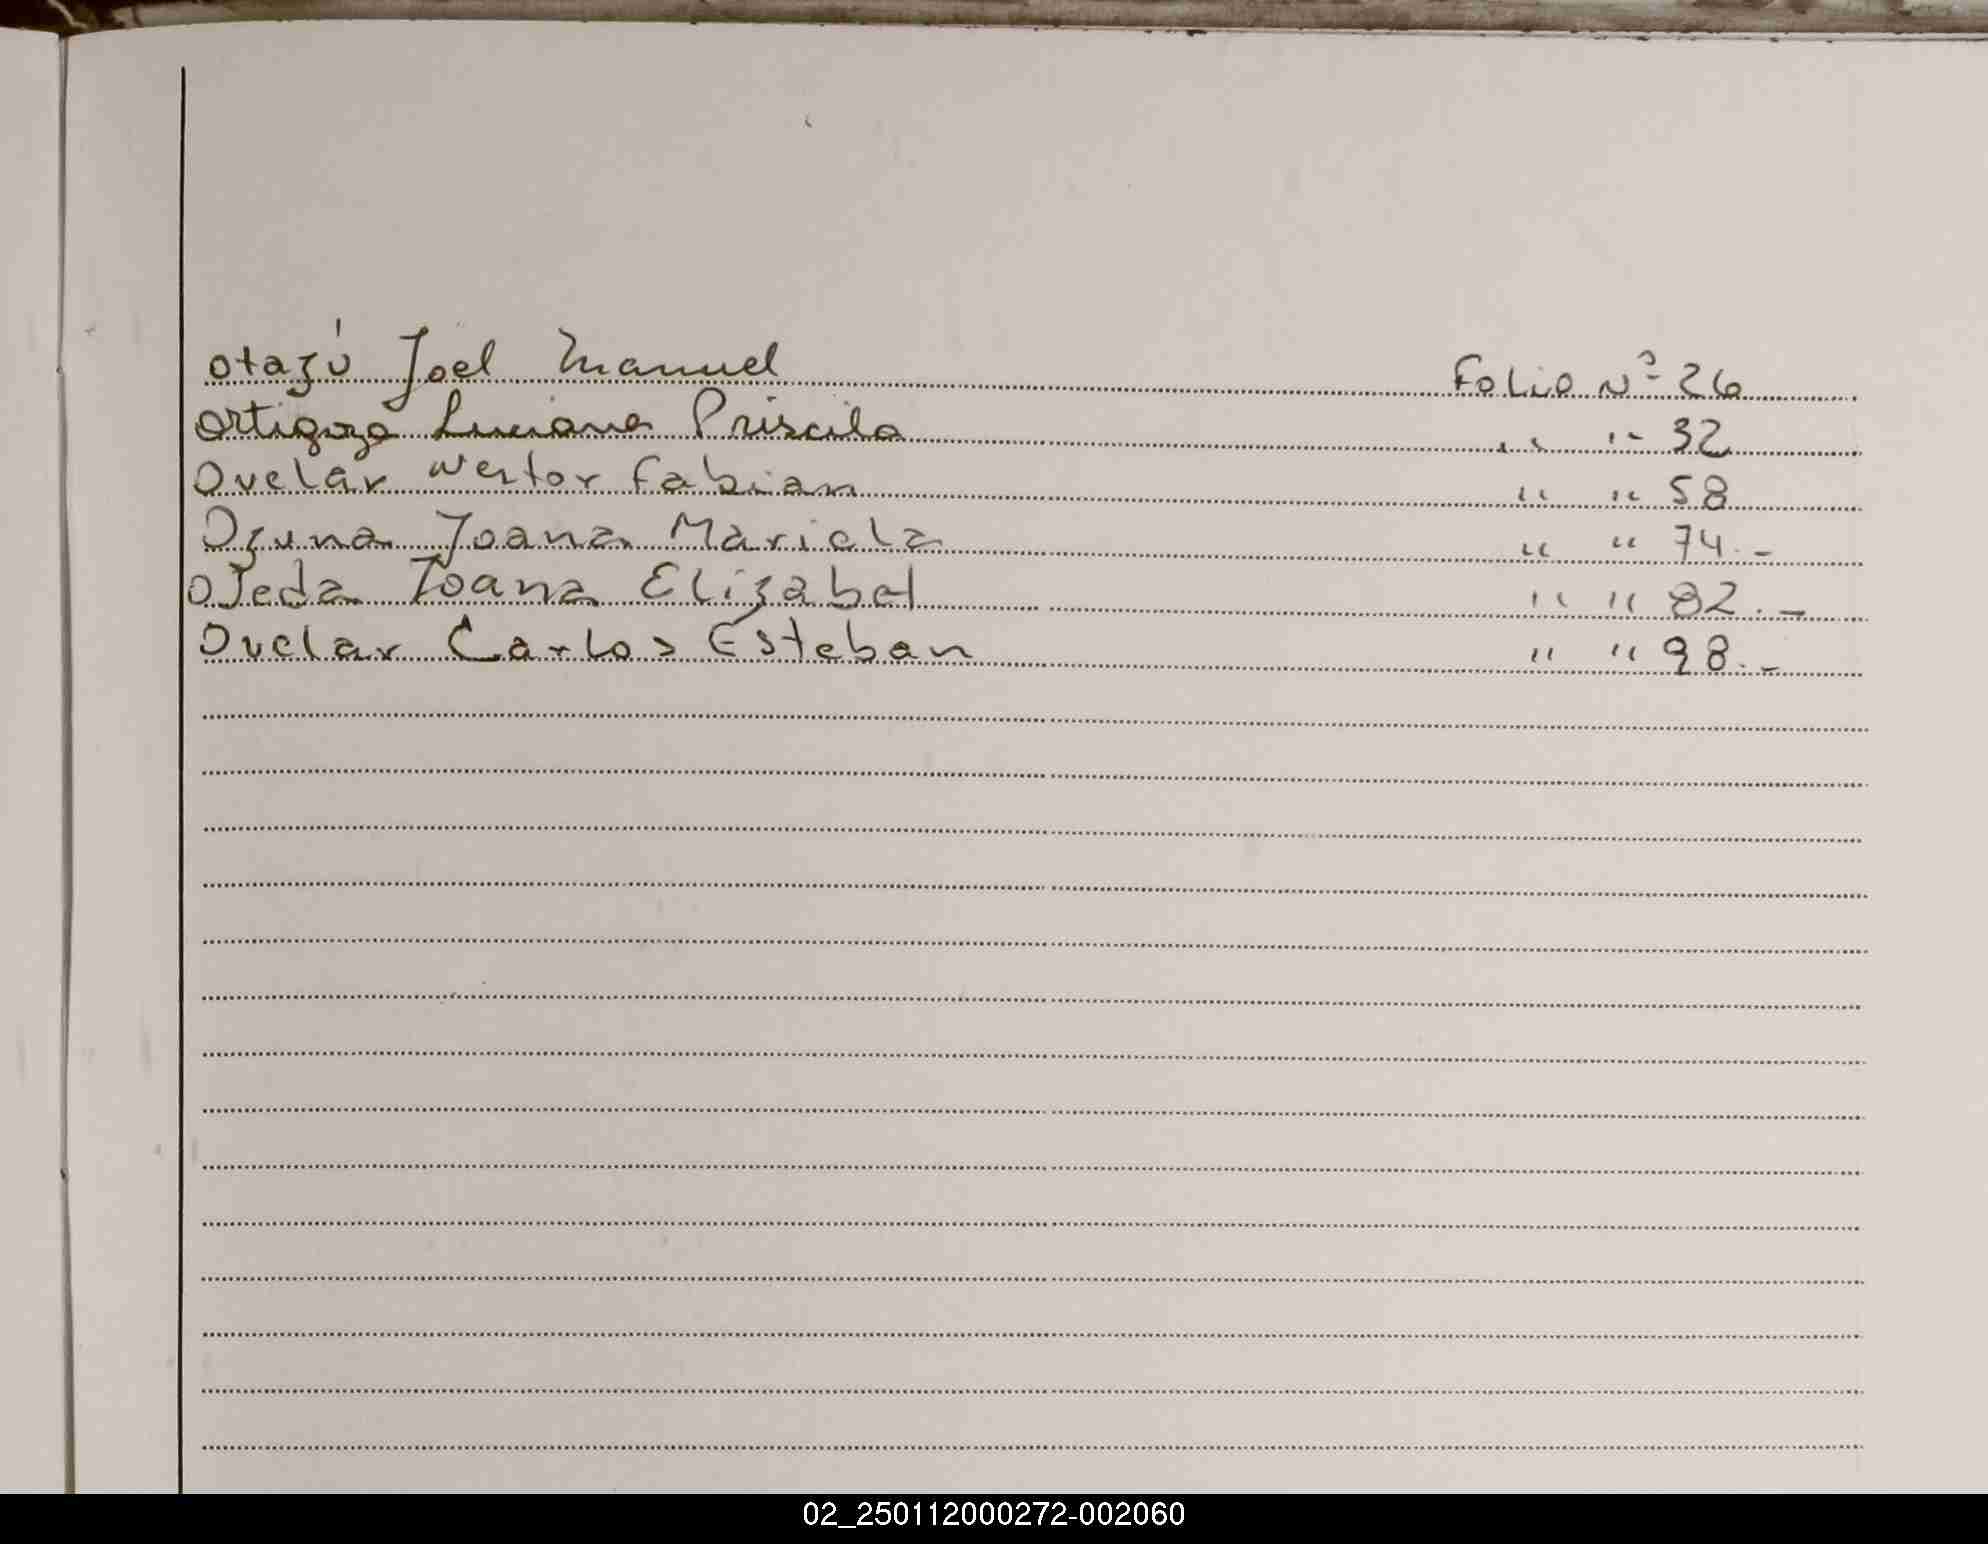 Otazú Joel Manuel Folio Nº 26
Ortigoza Luciana Priscila " " 32
Ovelar Nestor Fabian " " 58
Ozuna Joana Mariela " " 74.-
Ojeda Ioana Elizabet " " 82.-
Ovelar Carlos Esteban " " 98.-
02_250112000272-002060